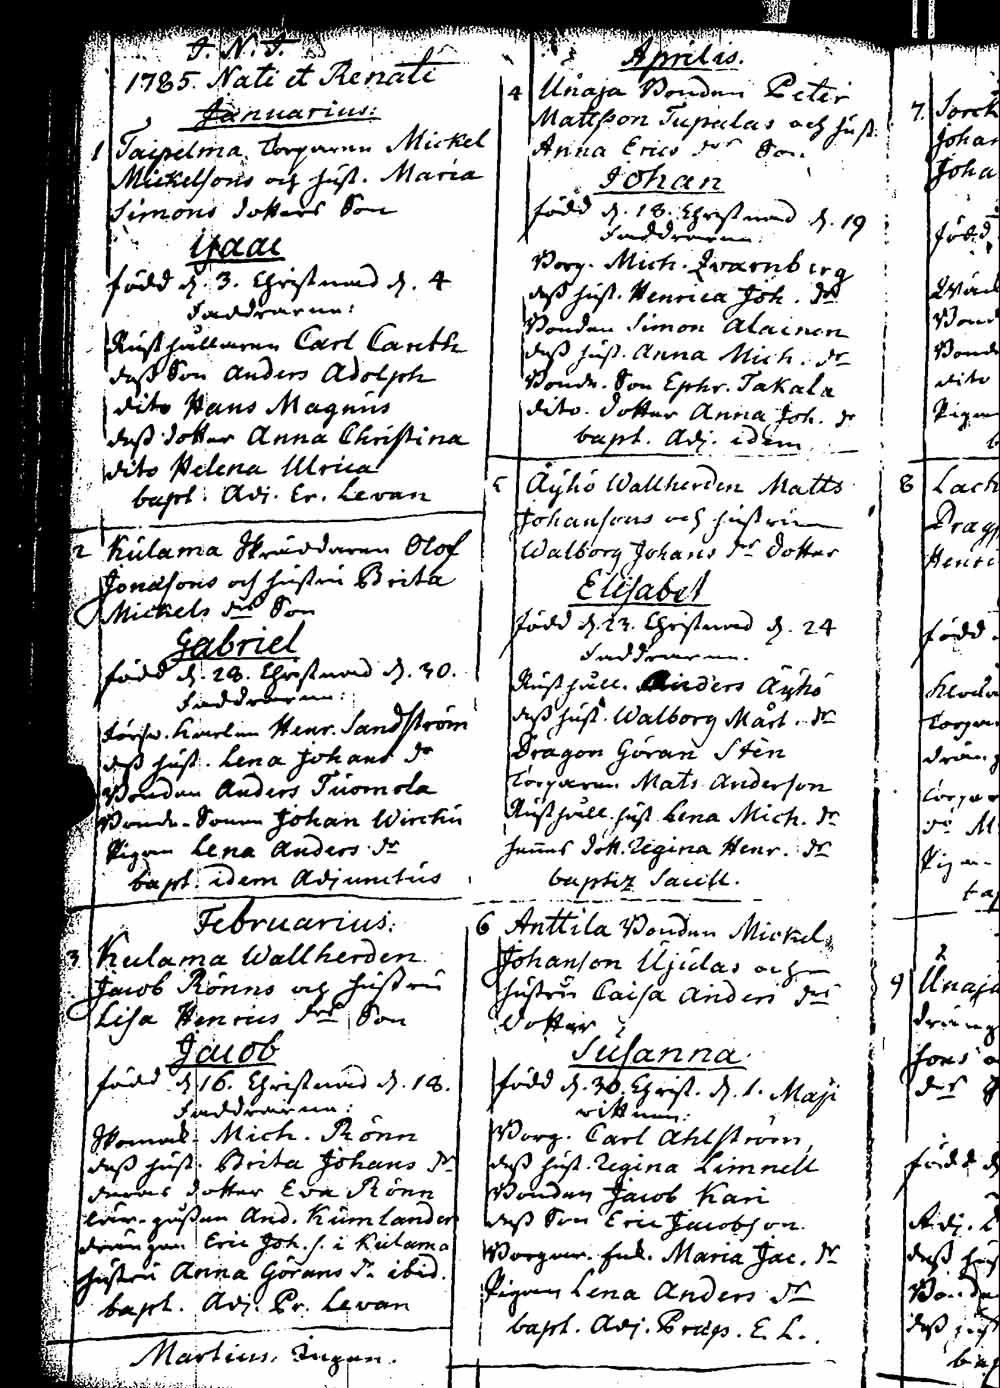 J. N. J.
1785. Nati et Renati
Januarius:
1 Taipelma Torparen Mickel
Mickelsons och hust. Maria
Simons dotters Son
Isaac
född d. 3. Christnad d. 4
Faddrarne:
Rusthållaren Carl Careth
dess Son Anders Adolph
dito Hans Magnus
dess dotter Anna Christina
dito Helena Ulrica
bapt. Adj. Er. Levan
2 Kulama Skräddaren Olof
Jonasons och hustru Brita
Mickels drs Son
Gabriel
född d. 28. Christnad d. 30.
Faddrarne:
Henr. Sandström
dess hust. Lena Johans dr
Bonden Anders Tuomola
Bonde-Sonen Johan Wircku
Pigan Lena Anders dr
bapt. idem Adjunctus
Februarius:
3 Kulama Wallherden
Jacob Rönns och hustru
Lisa Henrics drs Son
Jacob
född d. 16. Christnad d. 18.
Faddrarne:
Skomak. Mich. Rönn
dess hust. Brita Johans dr
deras dotter Eva Rönn
And. Kumlander
drängen Eric Joh. s. i Kulama
hustru Anna Görans dr ibid.
bapt. Adj. Er. Levan
Martius. Ingen.
Aprilis.
4 Unaja Bonden Peter
Mattsson Tupalas och hust.
Anna Erics drs Son
Johan
född d. 18. Christnad d. 19
Faddrarne:
Borg. Mich. Qvarnberg
dess hust. Henrica Joh. dr
Bonden Simon Alainen
dess hust. Anna Mich. dr
Bonde Son Ephr. Takala
dito dotter Anna Joh. dr
bapt. Adj. idem
5 Äyhö Wallherden Matts
Johansons och hustrun
Walborg Johans drs dotter
Elisabet
född d. 23. Christnad d. 24
Faddrarne.
Rusthåll. Anders Äyhö
dess hust. Walborg Mårt. dr
Dragon Göran Stén
Torparen Mats Anderson
Rusthåll. hust. Lena Mich. dr
hennes dott. Regina Henr. dr
baptiz Sacell.
6 Anttila Bonden Mickel
Johanson Ujulas och
hustrus Caisa Anders drs
dotter
Susanna
född d. 30. Christ. d. 1. Maji
vittnen:
Borg. Carl Ahlström
dess hust. Regina Limnell
Bonden Jacob Kari
dess Son Eric Jacobson
Maria Jac. dr
Pigan Lena Anders dr
bapt. Adj. Præp. E. L.
7.
Johan
Joha
född
Bond
Bond
dito
Pigan
8 Lach
Drag
Henri
född
Torpar
dräng
Torpar
dr M
Pigan
9 Unaja
dräng
sons
drs
född d
Adj.
dess hus
Bonde
dess
bap